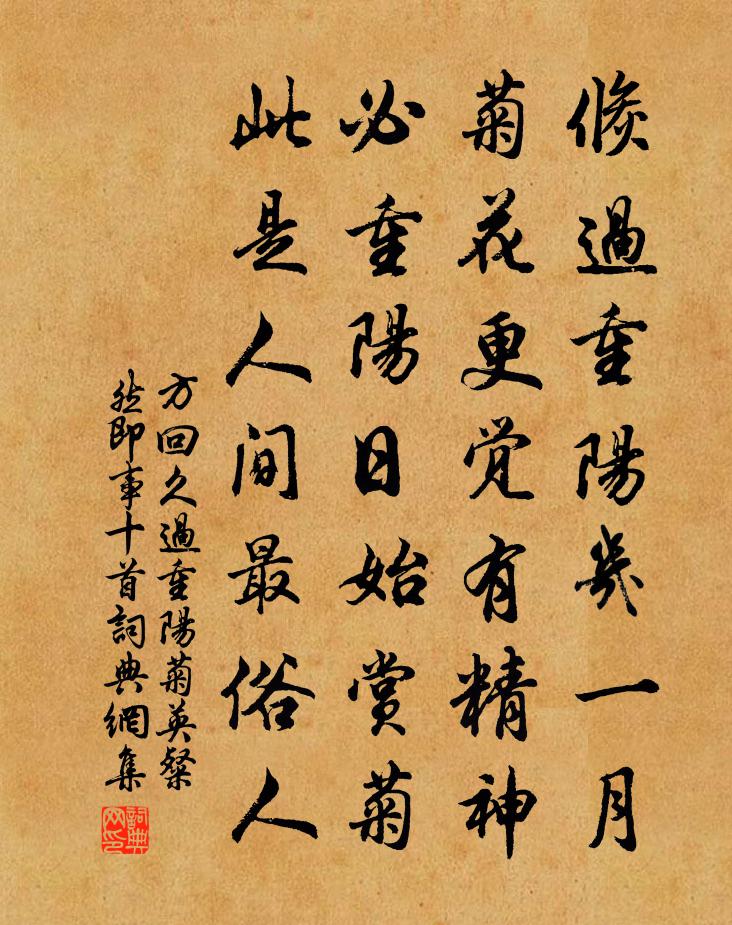 倐過重陽幾一月
菊花更覺有精神
必重陽日始賞菊
此是人間最俗人
方回久過重陽菊英粲
然即事十首詞典網集
詞典网印